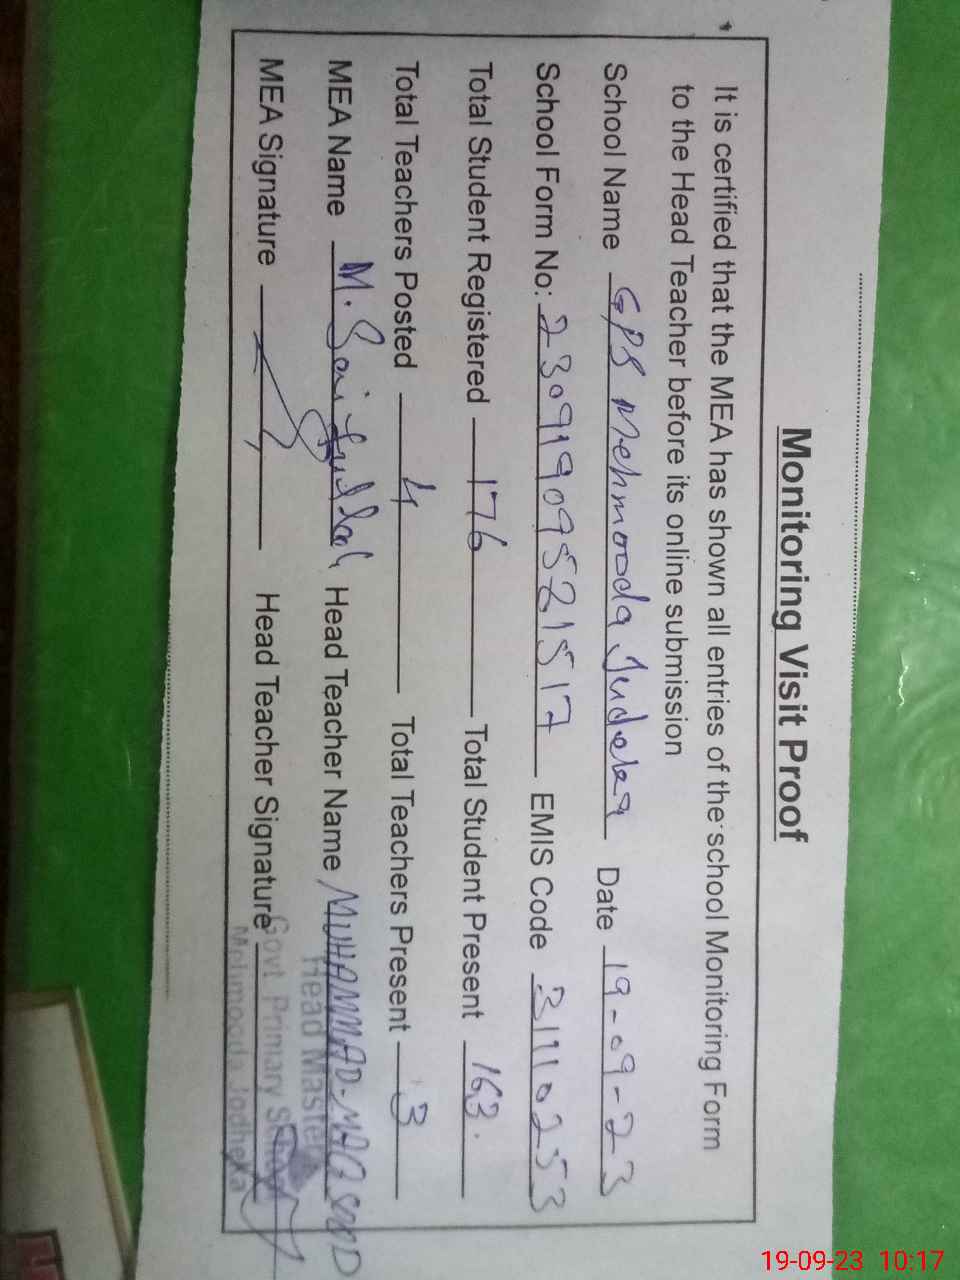 Monitoring Visit Proof
It is certified that the MEA has shown all entries of the school Monitoring Form
to the Head Teacher before its online submission
School Name GPS Mehmooda Judeka Date 19-09-23
School Form No: 23091909521517 EMIS Code 31110253
Total Student Registered 176 Total Student Present 163.
Total Teachers Posted 4 Total Teachers Present 3
MEA Name M. Saifullah Head Teacher Name MUHAMMAD-MAQSOOD
MEA Signature Head Teacher Signature
Head Master
Govt. Primary School
Mehmooda Jodheka
19-09-23 10:17